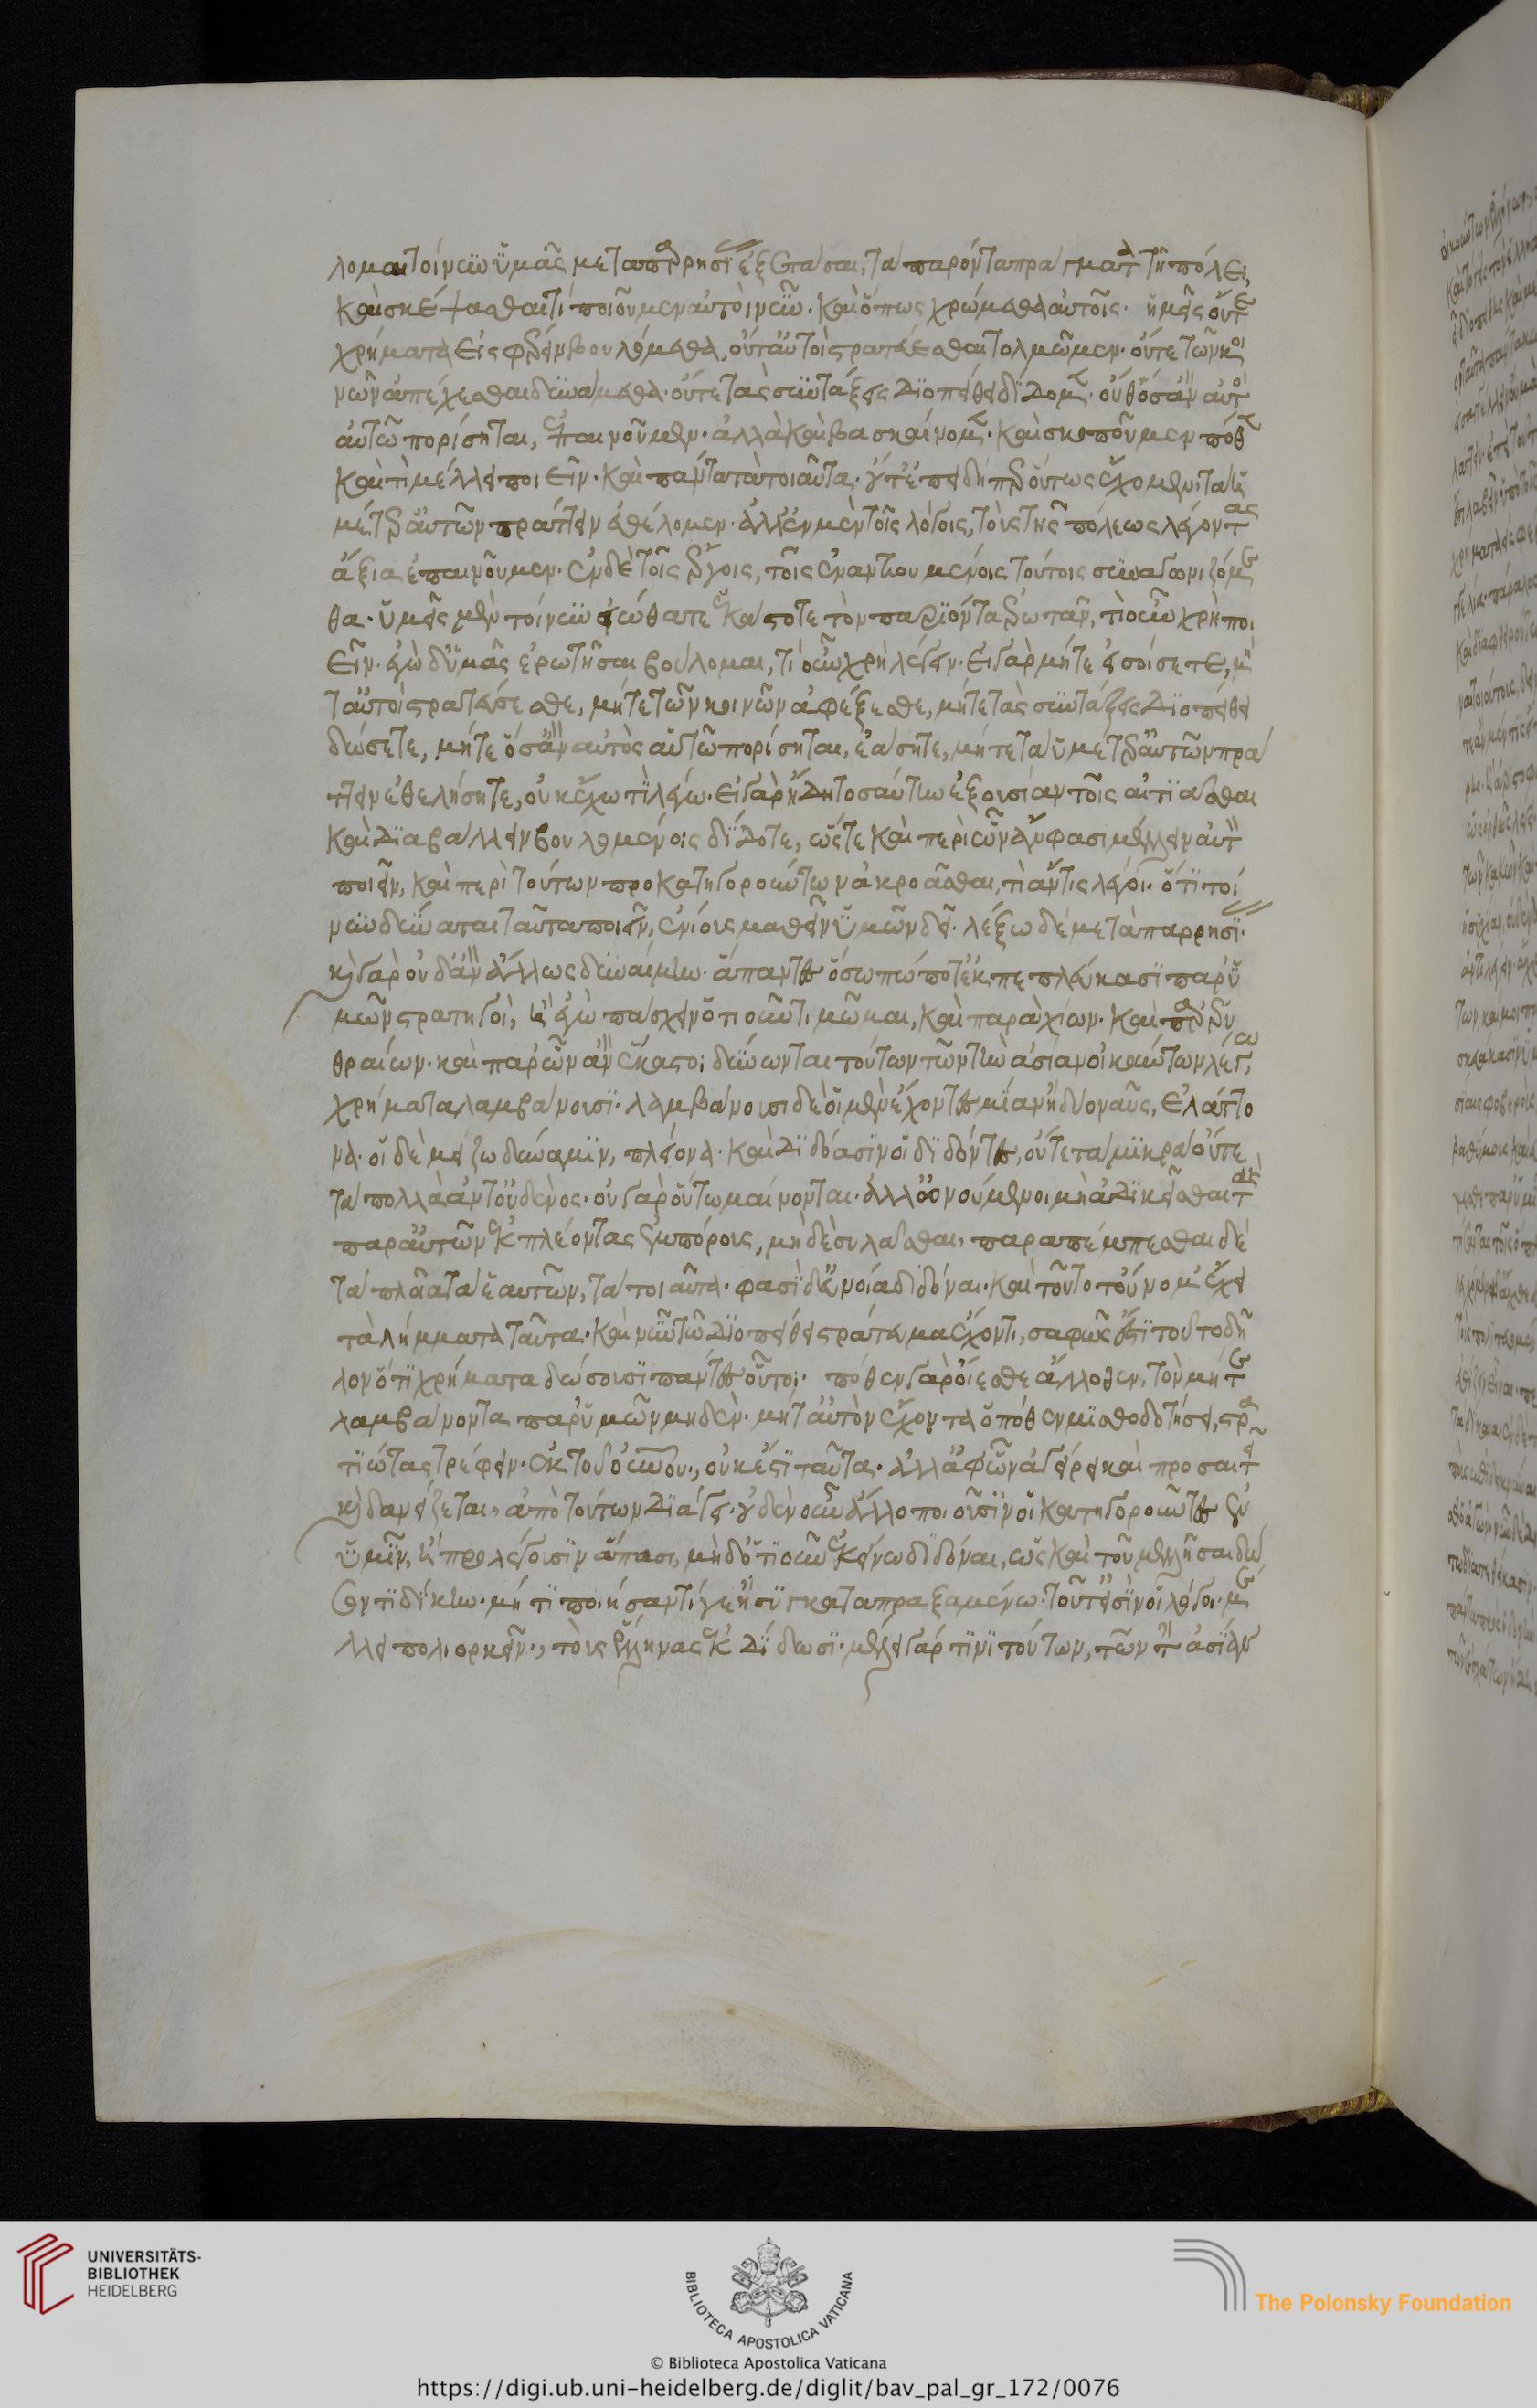 λομαι τοίνυν ὑμᾶς μετὰ παρρησίας ἐξετάσαι, τὰ παρόντα πράγματα τῇ πόλει,
καὶ σκέψασθαι τί ποιοῦμεν αὐτοὶ νῦν· καὶ ὅπως χρώμεθα αὐτοῖς· ἡμεῖς οὔτε
χρήματα εἰσφέρειν βουλόμεθα, οὔτ' αὐτοὶ στρατεύεσθαι τολμῶμεν· οὔτε τῶν κοι
νῶν ἀπέχεσθαι δυνάμεθα· οὔτε τὰς συντάξεις Διοπείθει δίδομεν· οὔθ' ὅσ' ἂν αὐτὸς
αὑτῷ πορίσηται, ἐπαινοῦμεν· ἀλλὰ καὶ βασκαίνομεν· καὶ σκοποῦμεν πόθεν
καὶ τί μέλλει ποιεῖν· καὶ πάντα τὰ τοιαῦτα· οὔτ' ἐπειδήπερ οὕτως ἔχομεν, τὰ ἡ
μέτερ' αὐτῶν πράττειν ἐθέλομεν· ἀλλ' ἐν μὲν τοῖς λόγοις, τοὺς τῆς πόλεως λέγοντας
ἄξια ἐπαινοῦμεν· ἐν δὲ τοῖς ἔργοις, τοῖς ἐναντιουμένοις τούτοις συναγωνιζόμε
θα· ὑμεῖς μὲν τοίνυν εἰώθατε ἑκάστοτε τὸν παριόντα ἐρωτᾶν, τί οὖν χρὴ ποι
εῖν· ἐγὼ δ' ὑμᾶς ἐρωτῆσαι βούλομαι, τί οὖν χρὴ λέγειν· εἰ γὰρ μήτε εἰσοίσετε, μή
τ' αὐτοὶ στρατεύσεσθε, μήτε τῶν κοινῶν ἀφέξεσθε, μήτε τὰς συντάξεις Διοπείθει
δώσετε, μήτε ὅσ' ἂν αὐτὸς αὑτῷ πορίσηται, ἐάσητε, μήτε τὰ ὑμέτερ' αὐτῶν πρά
ττειν ἐθελήσητε, οὐκ ἔχω τί λέγω· εἰ γὰρ ἤδη τοσαύτην ἐξουσίαν τοῖς αἰτιᾶσθαι
καὶ διαβάλλειν βουλομένοις δίδοτε, ὥστε καὶ περὶ ὧν ἂν φασὶ μέλλειν αὐτὸν
ποιεῖν, καὶ περὶ τούτων προκατηγορούντων ἀκροᾶσθαι, τί ἄν τις λέγοι· ὅ τι τοί
νυν δύναται ταῦτα ποιεῖν, ἐνίους μαθεῖν ὑμῶν δεῖ· λέξω δὲ μετὰ παρρησίας·
καὶ γὰρ οὐδ' ἂν ἄλλως δυναίμην· ἅπαντες ὅσοι πώποτ' ἐκπεπλεύκασι παρ' ὑ
μῶν στρατηγοί, ἢ ἐγὼ πάσχειν ὁτιοῦν τιμῶμαι, καὶ παρὰ χίων· καὶ παρ' ἐρυ
θραίων· καὶ παρ' ὧν ἂν ἕκαστοι δύνωνται τούτων τῶν τὴν ἀσίαν οἰκούντων λέγω,
χρήματα λαμβάνουσι· λαμβάνουσι δὲ οἱ μὲν ἔχοντες μίαν ἢ δύο ναῦς, ἐλάττο
να· οἱ δὲ μείζω δύναμιν, πλείονα· καὶ διδόασιν οἱ διδόντες, οὔτε τὰ μικρὰ οὔτε
τὰ πολλὰ ἀντ' οὐδενός· οὐ γὰρ οὕτω μαίνονται· ἀλλ' ὠνούμενοι μὴ ἀδικεῖσθαι τοὺς
παρ' αὐτῶν ἐκπλέοντας ἐμπόρους, μὴ δὲ συλᾶσθαι, παραπέμπεσθαι δὲ
τὰ πλοῖα τὰ ἑαυτῶν, τὰ τοιαῦτα· φασὶ δ' εὐνοίας διδόναι· καὶ τοῦτο τοὔνομ' ἔχει
τὰ λήμματα ταῦτα· καὶ νῦν τῷ Διοπείθει στράτευμα ἔχοντι, σαφῶς ἐστὶ τοῦτο δῆ
λον ὅτι χρήματα δώσουσι πάντες οὗτοι· πόθεν γὰρ οἴεσθε ἄλλοθεν, τὸν μήτε
λαμβάνοντα παρ' ὑμῶν μηδέν· μήτ' αὐτὸν ἔχοντα ὁπόθεν μισθοδοτήσει, στρα
τιώτας τρέφειν· ἐκ τοῦ οὐρανοῦ, οὐκ ἔστι ταῦτα· ἀλλ' ἀφ' ὧν ἀγείρει καὶ προσαιτεῖ
καὶ δανείζεται, ἀπὸ τούτων διάγει· οὐδὲν οὖν ἄλλο ποιοῦσιν οἱ κατηγοροῦντες ἐν
ὑμῖν, ἢ προλέγουσιν ἅπασι, μὴδ' ὁτιοῦν ἐκείνῳ διδόναι, ὡς καὶ τοῦ μελλῆσαι δώ
σοντι δίκην· μή τι ποιήσαντί γε ἢ συγκαταπραξαμένῳ· τοῦτ' εἰσὶν οἱ λόγοι· μέ
λλει πολιορκεῖν, τοὺς ἕλληνας ἐκδίδωσι· μέλει γάρ τινι τούτων, τῶν τὴν ἀσίαν
UNIVERSITÄTS-
BIBLIOTHEK
HEIDELBERG
BIBLIOTECA APOSTOLICA VATICANA
The Polonsky Foundation
© Biblioteca Apostolica Vaticana
https://digi.ub.uni-heidelberg.de/diglit/bav_pal_gr_172/0076